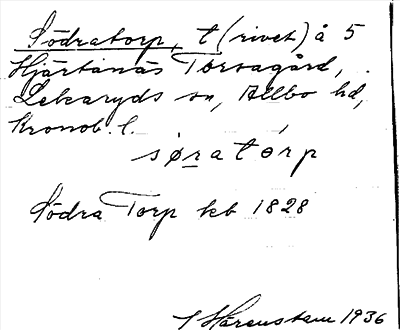 Södratorp, t (rivet) å 5
Hjärtanäs Torsagård,
Lekaryds sn, Allbo hd,
Kronob. l.
søratórp
Södra Torp kb 1828
Härenstam 1936